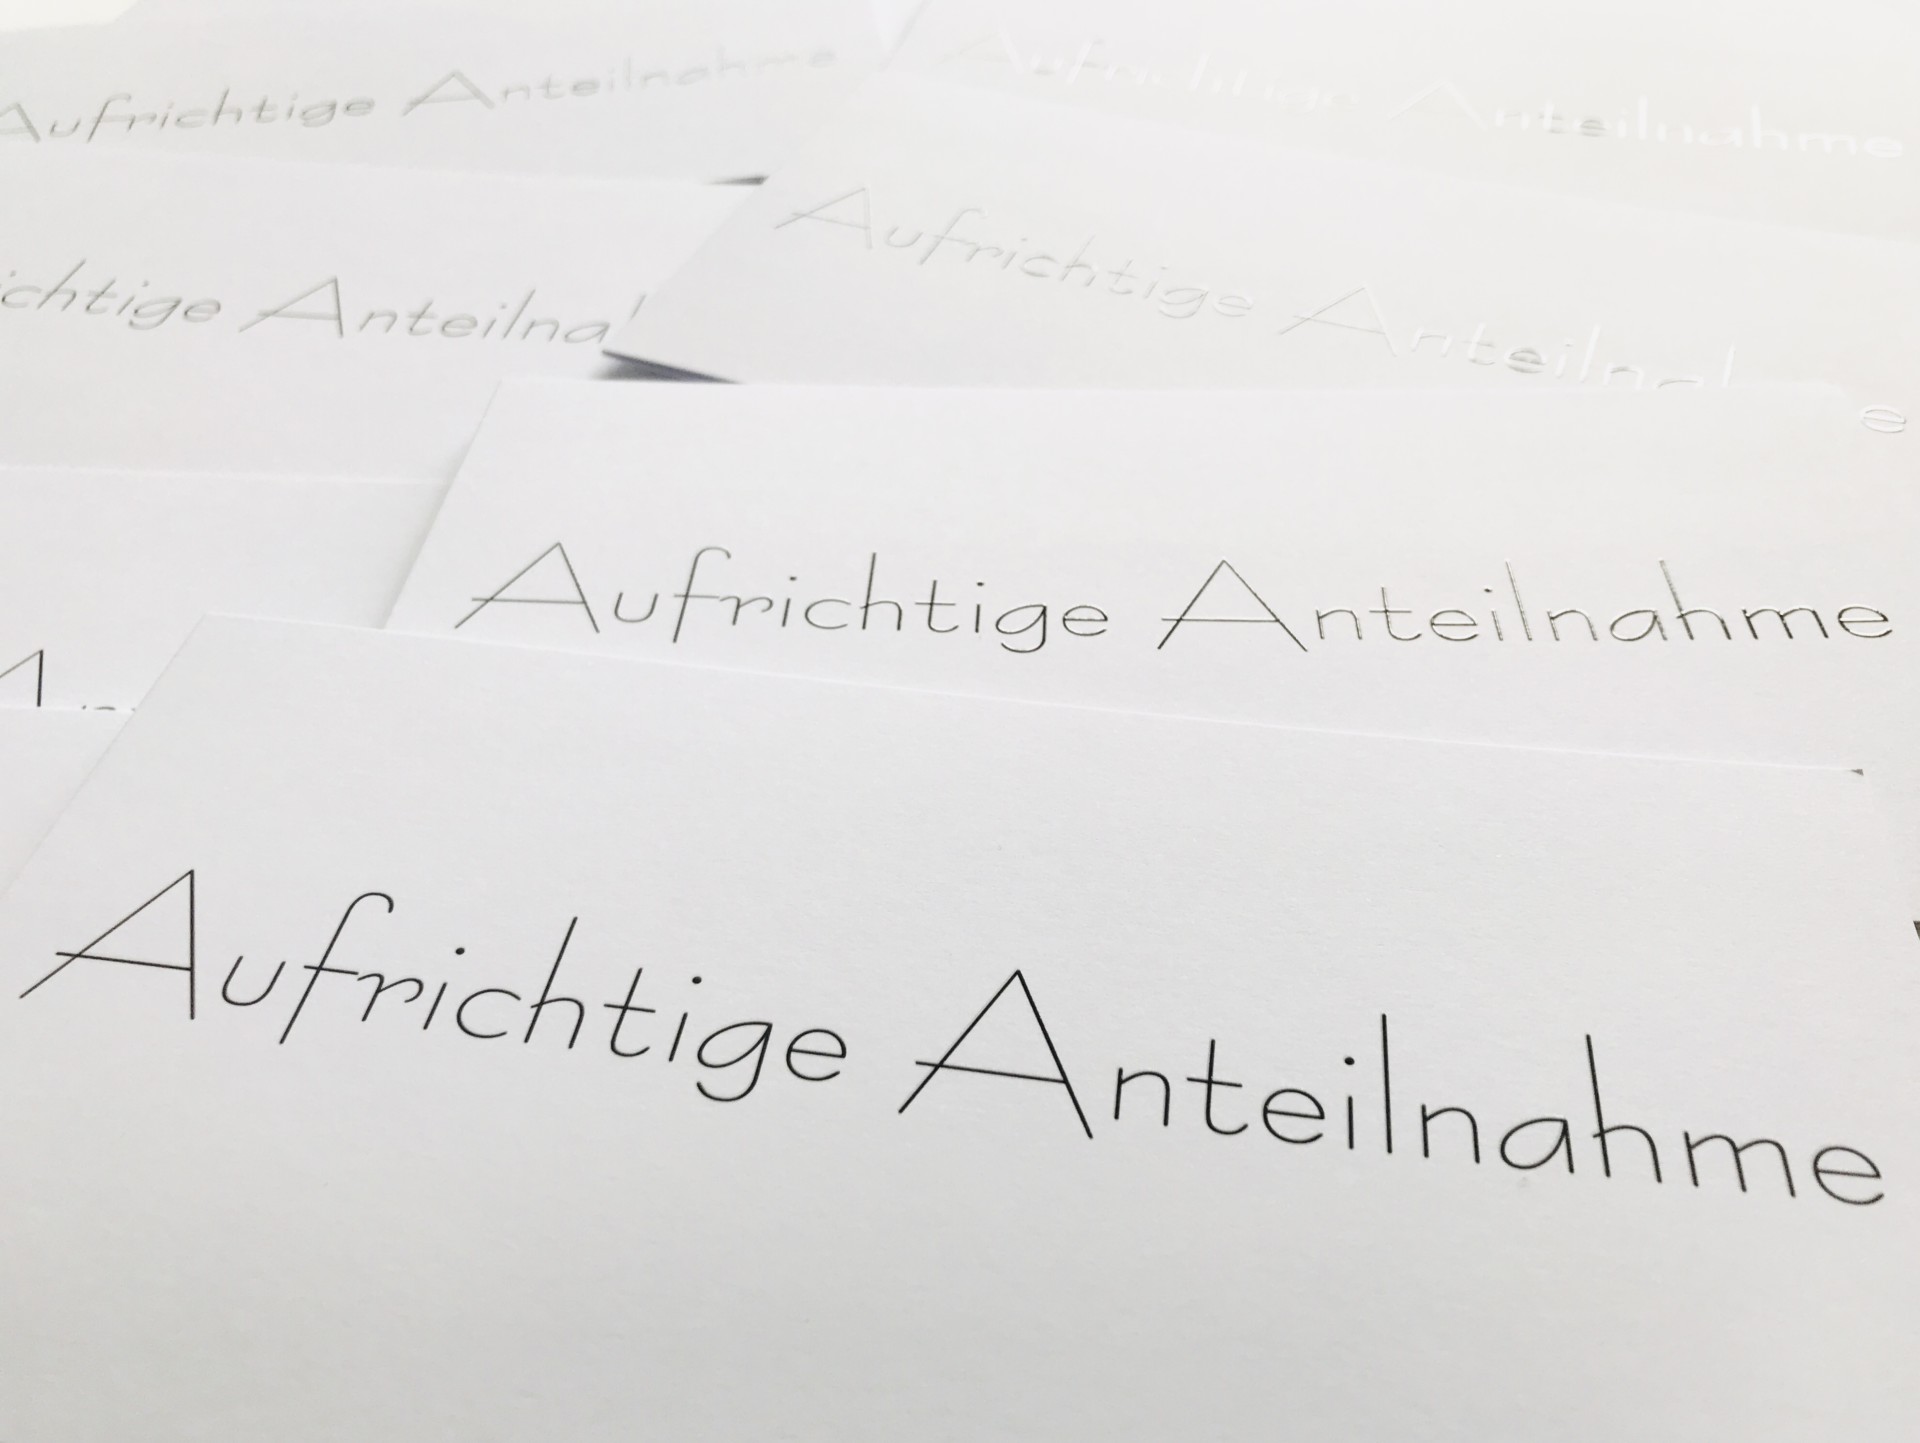 Aufrichtige Anteilnahme
Aufrichtige Anteilnahme
Aufrichtige
Anteilnahme
Aufrichtige Anteilnahme
Aufrichtige Anteilnahme